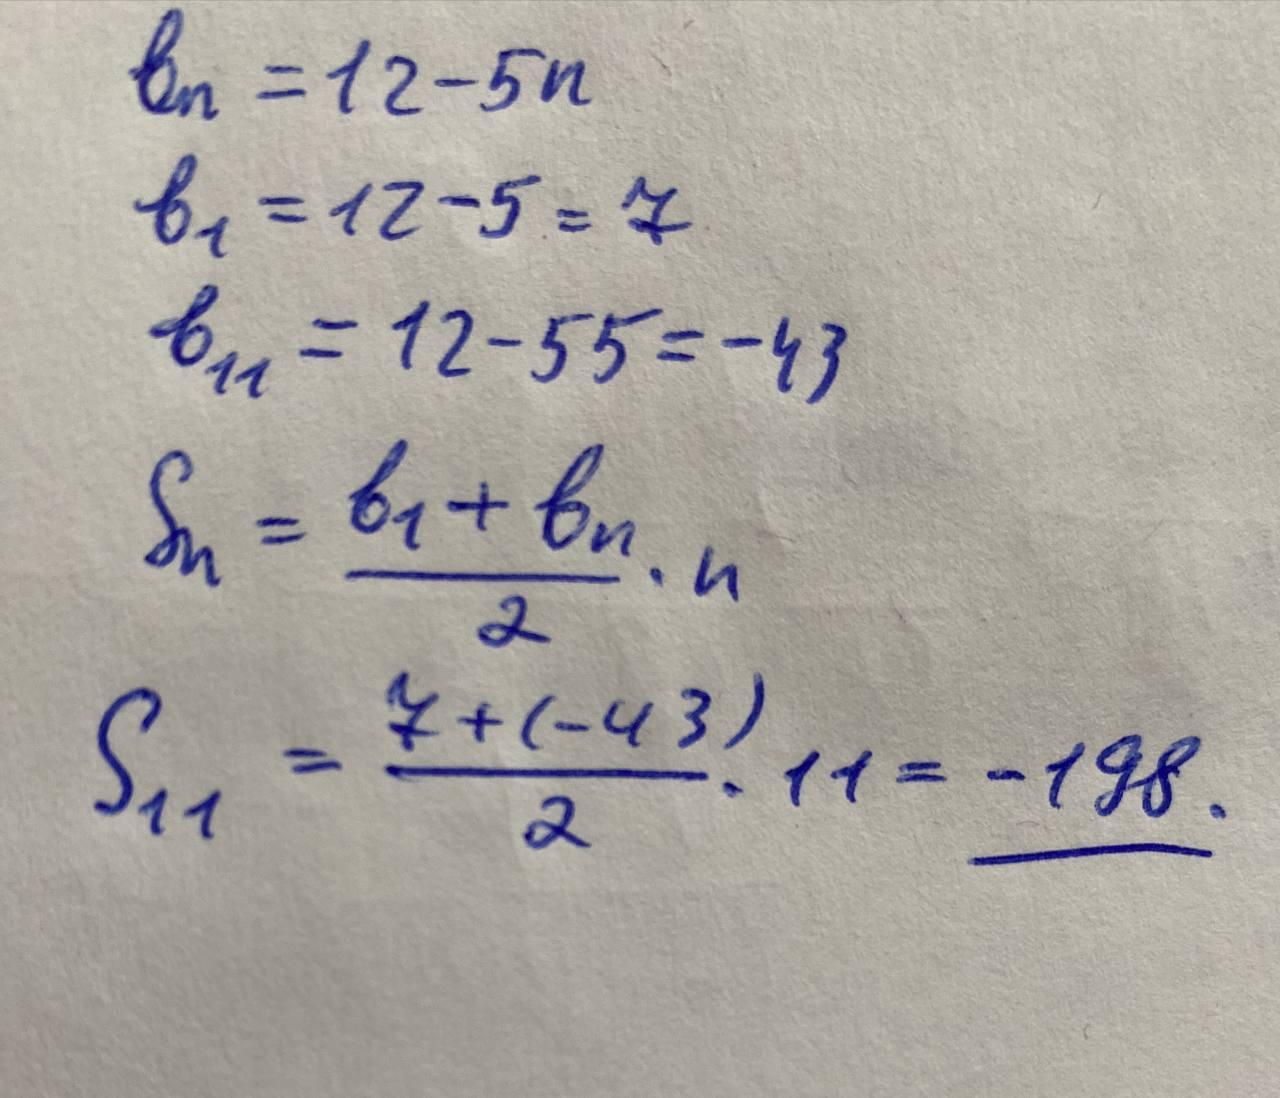 bₙ = 12 - 5n
b₁ = 12 - 5 = 7
b₁₁ = 12 - 55 = -43
Sₙ = (b₁ + bₙ)/2 · n
S₁₁ = (7 + (-43))/2 · 11 = -198.